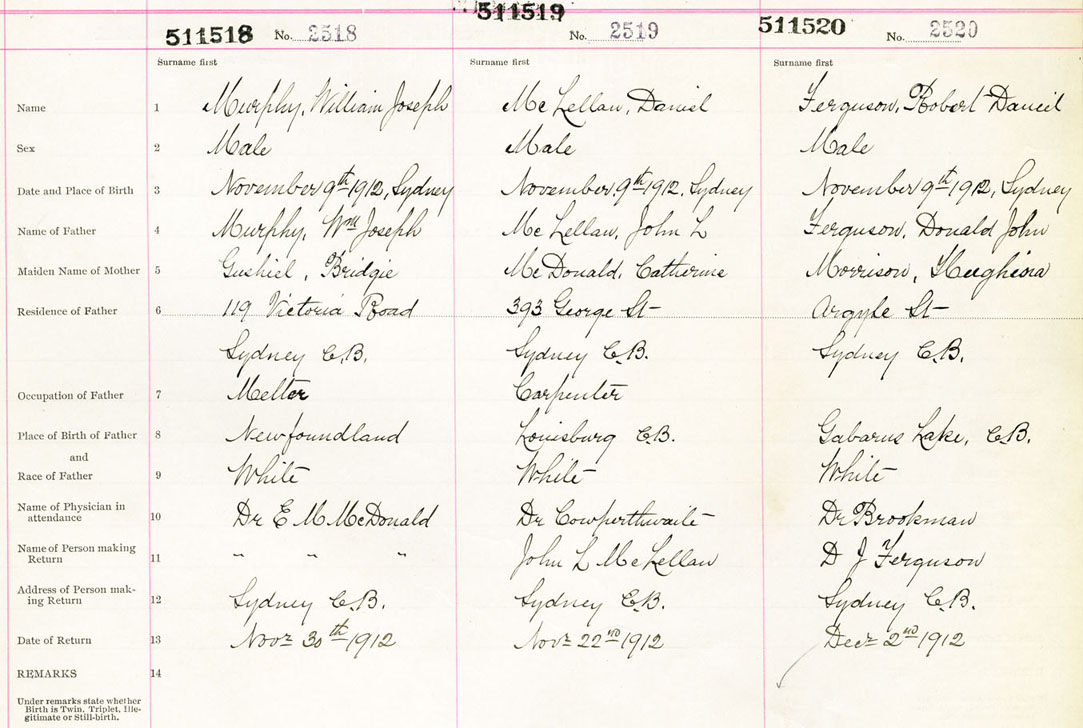 511518 No. 2518 511519 No. 2519 511520 No. 2520
Surname first Surname first Surname first
Name 1 Murphy, William Joseph McLellan, Daniel Ferguson, Robert Daneil
Sex 2 Male Male Male
Date and Place of Birth 3 November 9th 1912, Sydney November 9th 1912, Sydney November 9th 1912, Sydney
Name of Father 4 Murphy, Wm Joseph McLellan, John L Ferguson, Donald John
Maiden Name of Mother 5 Bridgie McDonald, Catherine Morrison, Hughina
Residence of Father 6 119 Victoria Road 393 George St Argyle St
Sydney C.B. Sydney C.B. Sydney C.B.
Occupation of Father 7 Melter Carpenter
Place of Birth of Father 8 Newfoundland Louisburg C.B. Gabarus Lake, C.B.
and
Race of Father 9 White White White
Name of Physician in
attendance 10 Dr E M McDonald Dr Cowperthwaite Dr Brookman
Name of Person making
Return 11 " " " John L McLellan D J Ferguson
Address of Person mak-
ing Return 12 Sydney C.B. Sydney C.B. Sydney C.B.
Date of Return 13 Novr 30th 1912 Novr 22nd 1912 Decr 2nd 1912
REMARKS 14
Under remarks state whether
Birth is Twin, Triplet, Ille-
gitimate or Still-birth.